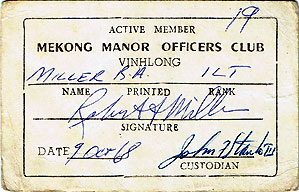 19
ACTIVE MEMBER
MEKONG MANOR OFFICERS CLUB
VINHLONG
MILLER R.A. 1LT
NAME PRINTED RANK
Robert A Miller
SIGNATURE
DATE 9 Oct 68 John H
CUSTODIAN